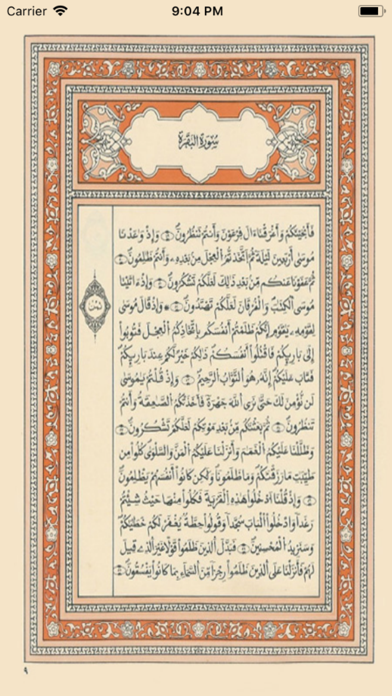 Carrier 9:04 PM
سُورَةُ البَقَرَة
فَأَنجَيْنَٰكُمْ وَأَغْرَقْنَا ءَالَ فِرْعَوْنَ وَأَنتُمْ تَنظُرُونَ وَإِذْ وَٰعَدْنَا
مُوسَىٰ أَرْبَعِينَ لَيْلَةً ثُمَّ اتَّخَذتُّمُ الْعِجْلَ مِنۢ بَعْدِهِ وَأَنتُمْ ظَٰلِمُونَ
ثُمَّ عَفَوْنَا عَنكُم مِّنۢ بَعْدِ ذَٰلِكَ لَعَلَّكُمْ تَشْكُرُونَ وَإِذَ اتَيْنَا
مُوسَى الْكِتَٰبَ وَالْفُرْقَانَ لَعَلَّكُمْ تَهْتَدُونَ وَإِذْ قَالَ مُوسَىٰ
لِقَوْمِهِ يَٰقَوْمِ إِنَّكُمْ ظَلَمْتُمْ أَنفُسَكُم بِاتِّخَاذِكُمُ الْعِجْلَ فَتُوبُوا
إِلَىٰ بَارِئِكُمْ فَاقْتُلُوا أَنفُسَكُمْ ذَٰلِكُمْ خَيْرٌ لَّكُمْ عِندَ بَارِئِكُمْ
فَتَابَ عَلَيْكُمْ إِنَّهُ هُوَ التَّوَّابُ الرَّحِيمُ وَإِذْ قُلْتُمْ يَٰمُوسَىٰ
لَن نُّؤْمِنَ لَكَ حَتَّىٰ نَرَى اللَّهَ جَهْرَةً فَأَخَذَتْكُمُ الصَّٰعِقَةُ وَأَنتُمْ
تَنظُرُونَ ثُمَّ بَعَثْنَٰكُم مِّنۢ بَعْدِ مَوْتِكُمْ لَعَلَّكُمْ تَشْكُرُونَ
وَظَلَّلْنَا عَلَيْكُمُ الْغَمَٰمَ وَأَنزَلْنَا عَلَيْكُمُ الْمَنَّ وَالسَّلْوَىٰ كُلُوا مِن
طَيِّبَٰتِ مَا رَزَقْنَٰكُمْ وَمَا ظَلَمُونَا وَلَٰكِن كَانُوا أَنفُسَهُمْ يَظْلِمُونَ
وَإِذْ قُلْنَا ادْخُلُوا هَٰذِهِ الْقَرْيَةَ فَكُلُوا مِنْهَا حَيْثُ شِئْتُمْ
رَغَدًا وَادْخُلُوا الْبَابَ سُجَّدًا وَقُولُوا حِطَّةٌ يُغْفَرْ لَكُمْ خَطَٰيَٰكُمْ
وَسَنَزِيدُ الْمُحْسِنِينَ فَبَدَّلَ الَّذِينَ ظَلَمُوا قَوْلًا غَيْرَ الَّذِي قِيلَ
لَهُمْ فَأَنزَلْنَا عَلَى الَّذِينَ ظَلَمُوا رِجْزًا مِّنَ السَّمَاءِ بِمَا كَانُوا يَفْسُقُونَ
ثمن